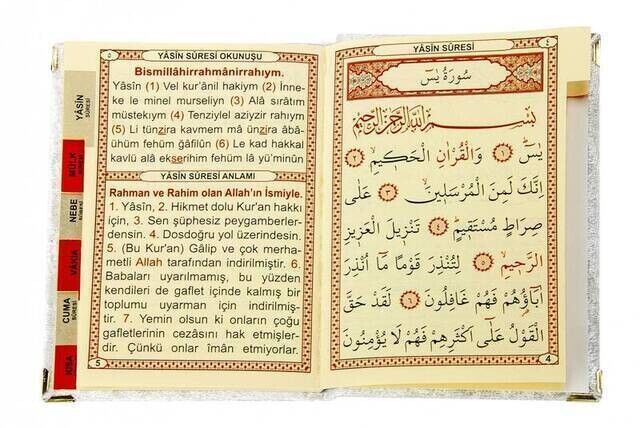 ٥
YÂSİN SÛRESİ OKUNUŞU
Bismillâhirrahmânirrahıym.
Yâsîn (1) Vel kur'ânil hakiym (2) İnne-
ke le minel murseliyn (3) Alâ sırâtım
müstekıym (4) Tenziylel aziyzir rahıym
(5) Li tünzira kavmem mâ ünzira âbâ-
ühüm fehüm ğâfilûn (6) Le kad hakkal
kavlü alâ ekserihim fehüm lâ yü'minûn
YÂSİN SÛRESİ ANLAMI
Rahman ve Rahim olan Allah'ın İsmiyle.
1. Yâsîn, 2. Hikmet dolu Kur'an hakkı
için, 3. Sen şüphesiz peygamberler-
densin. 4. Dosdoğru yol üzerindesin.
5. (Bu Kur'an) Gâlip ve çok merha-
metli Allah tarafından indirilmiştir. 6.
Babaları uyarılmamış, bu yüzden
kendileri de gaflet içinde kalmış bir
toplumu uyarman için indirilmiş-
tir. 7. Yemin olsun ki onların çoğu
gafletlerinin cezâsını hak etmişler-
dir. Çünkü onlar îmân etmiyorlar.
5
YÂSİN
SÛRESİ
MÜLK
SÛRESİ
NEBE
SÛRESİ
VÂKIA
CUMA
SÛRESİ
KISA
٤
YÂSİN SÛRESİ
سُورَةُ يٰسٓ
بِسْمِ اللّٰهِ الرَّحْمٰنِ الرَّحِيمِ
يٰسٓ ﴿١﴾ وَالْقُرْاٰنِ الْحَكِيمِ ﴿٢﴾
اِنَّكَ لَمِنَ الْمُرْسَلِينَ ﴿٣﴾ عَلٰى
صِرَاطٍ مُسْتَقِيمٍ ﴿٤﴾ تَنْزِيلَ الْعَزِيزِ
الرَّحِيمِ ﴿٥﴾ لِتُنْذِرَ قَوْمًا مَٓا اُنْذِرَ
اٰبَٓاؤُهُمْ فَهُمْ غَافِلُونَ ﴿٦﴾ لَقَدْ حَقَّ
الْقَوْلُ عَلٰٓى اَكْثَرِهِمْ فَهُمْ لَا يُؤْمِنُونَ
4